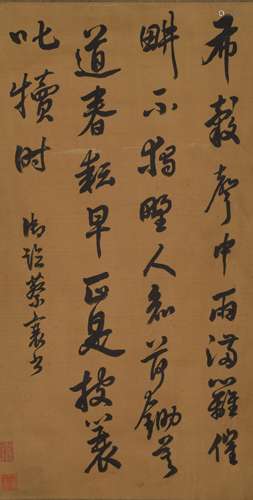 布穀聲中雨滿籬催
畊不獨野人知荷鋤莫
道春耘早正是披蓑
叱犢時
御臨蔡襄書